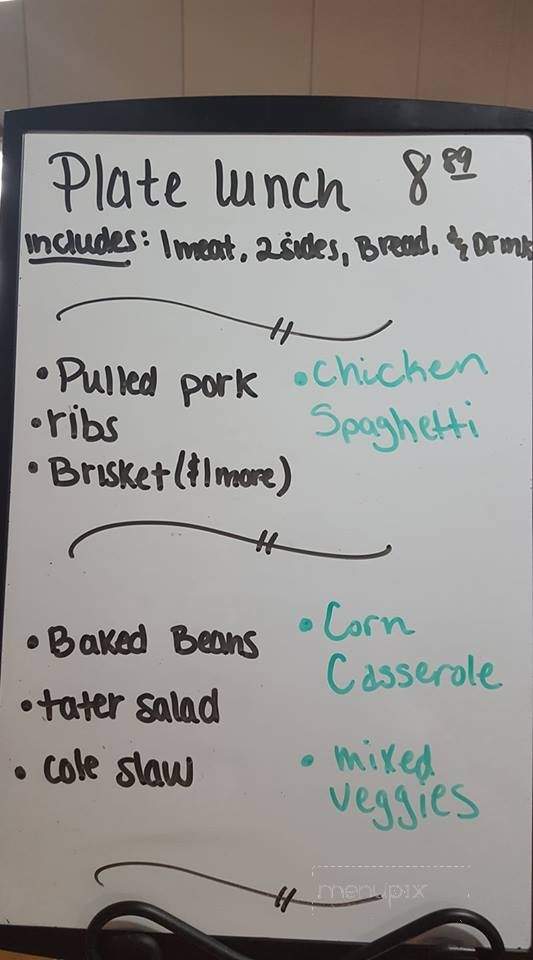 Plate lunch 8 89
includes: 1 meat, 2 sides, Bread, & Drink
• Pulled pork
• ribs
• Brisket ($1 more)
• Chicken
Spaghetti
• Baked Beans
• tater salad
• cole slaw
• Corn
Casserole
• mixed
veggies
menupix